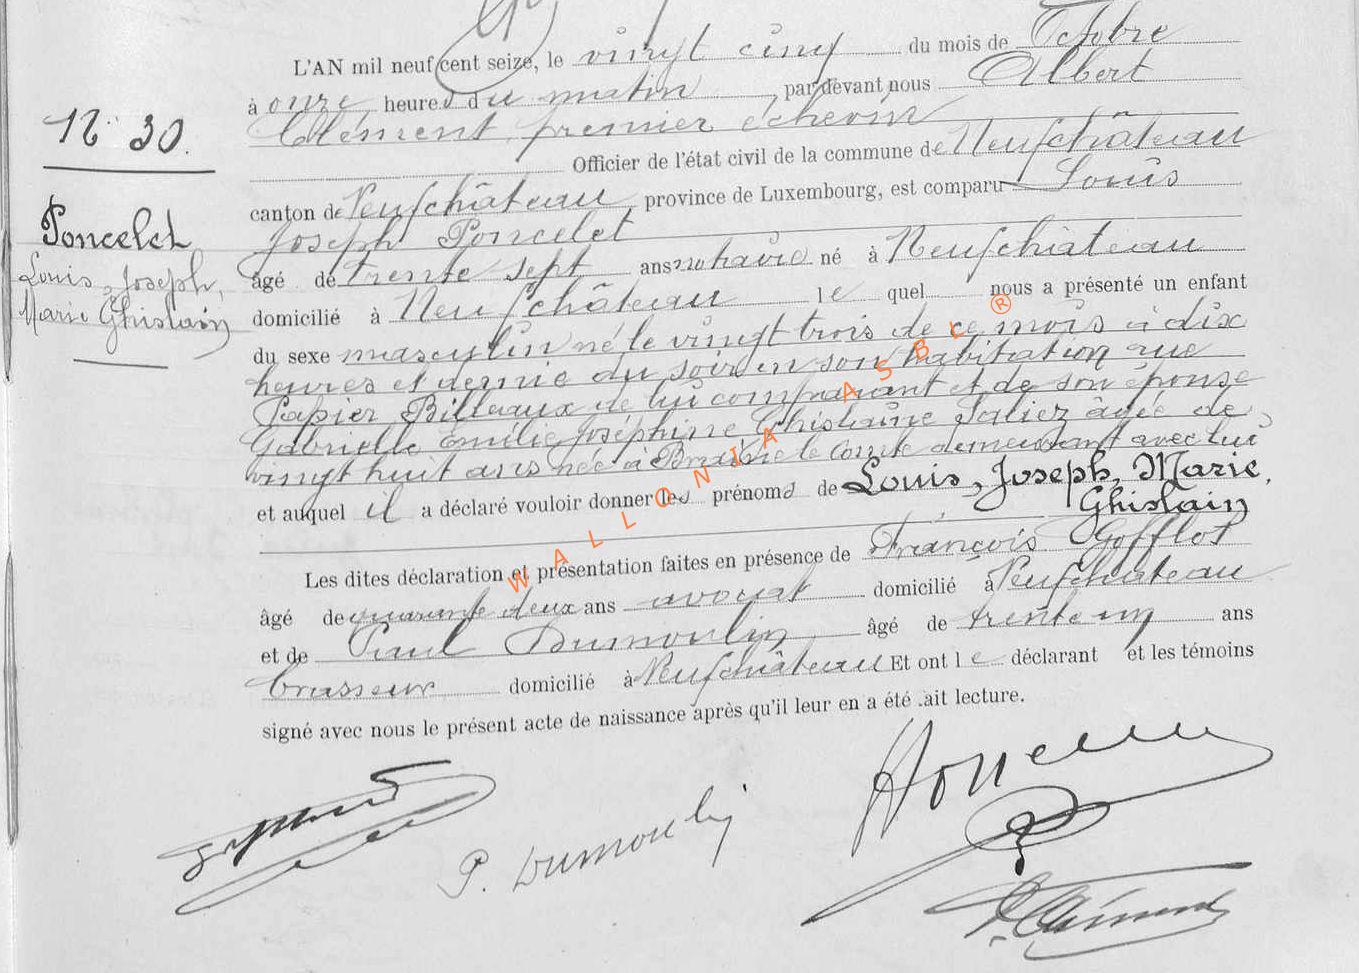 L'AN mil neuf cent seize, le vingt cinq du mois de Octobre
à onze heures du matin, par devant nous Albert
Clément, premier échevin
Officier de l'état civil de la commune de Neufchâteau
canton de Neufchâteau province de Luxembourg, est comparu Louis
Joseph Poncelet
âgé de trente sept ans né à Neufchâteau
domicilié à Neufchâteau le quel nous a présenté un enfant
du sexe masculin né le vingt trois de ce mois à dix
heures et demie du soir en son habitation rue
de lui comparant et de son épouse
Gabrielle Emilie Joséphine Ghislaine âgée de
vingt huit ans née à Braine le Comte demeurant avec lui
et auquel il a déclaré vouloir donner les prénoms de Louis, Joseph, Marie,
Ghislain
Les dites déclaration et présentation faites en présence de François Gofflot
âgé de quarante deux ans avocat domicilié à Neufchâteau
et de Paul Dumoulin âgé de trente un ans
brasseur domicilié à Neufchâteau Et ont le déclarant et les témoins
signé avec nous le présent acte de naissance après qu'il leur en a été .ait lecture.
N° 30.
Poncelet
Louis, Joseph,
Marie Ghislain
P. Dumoulin
WALLONIA ASBL ®